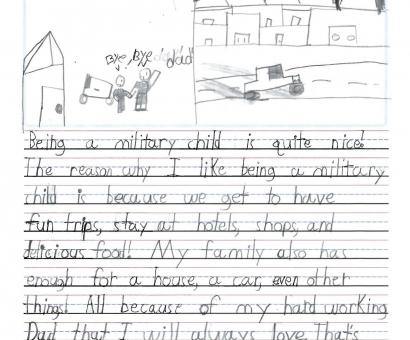 Bye, Bye dad
Being a military child is quite nice!
The reason why I like being a military
child is because we get to have
fun trips, stay at hotels, shops, and
delicious food! My family also has
enough for a house, a car, even other
things! All because of my hard working
Dad that I will always love. That's